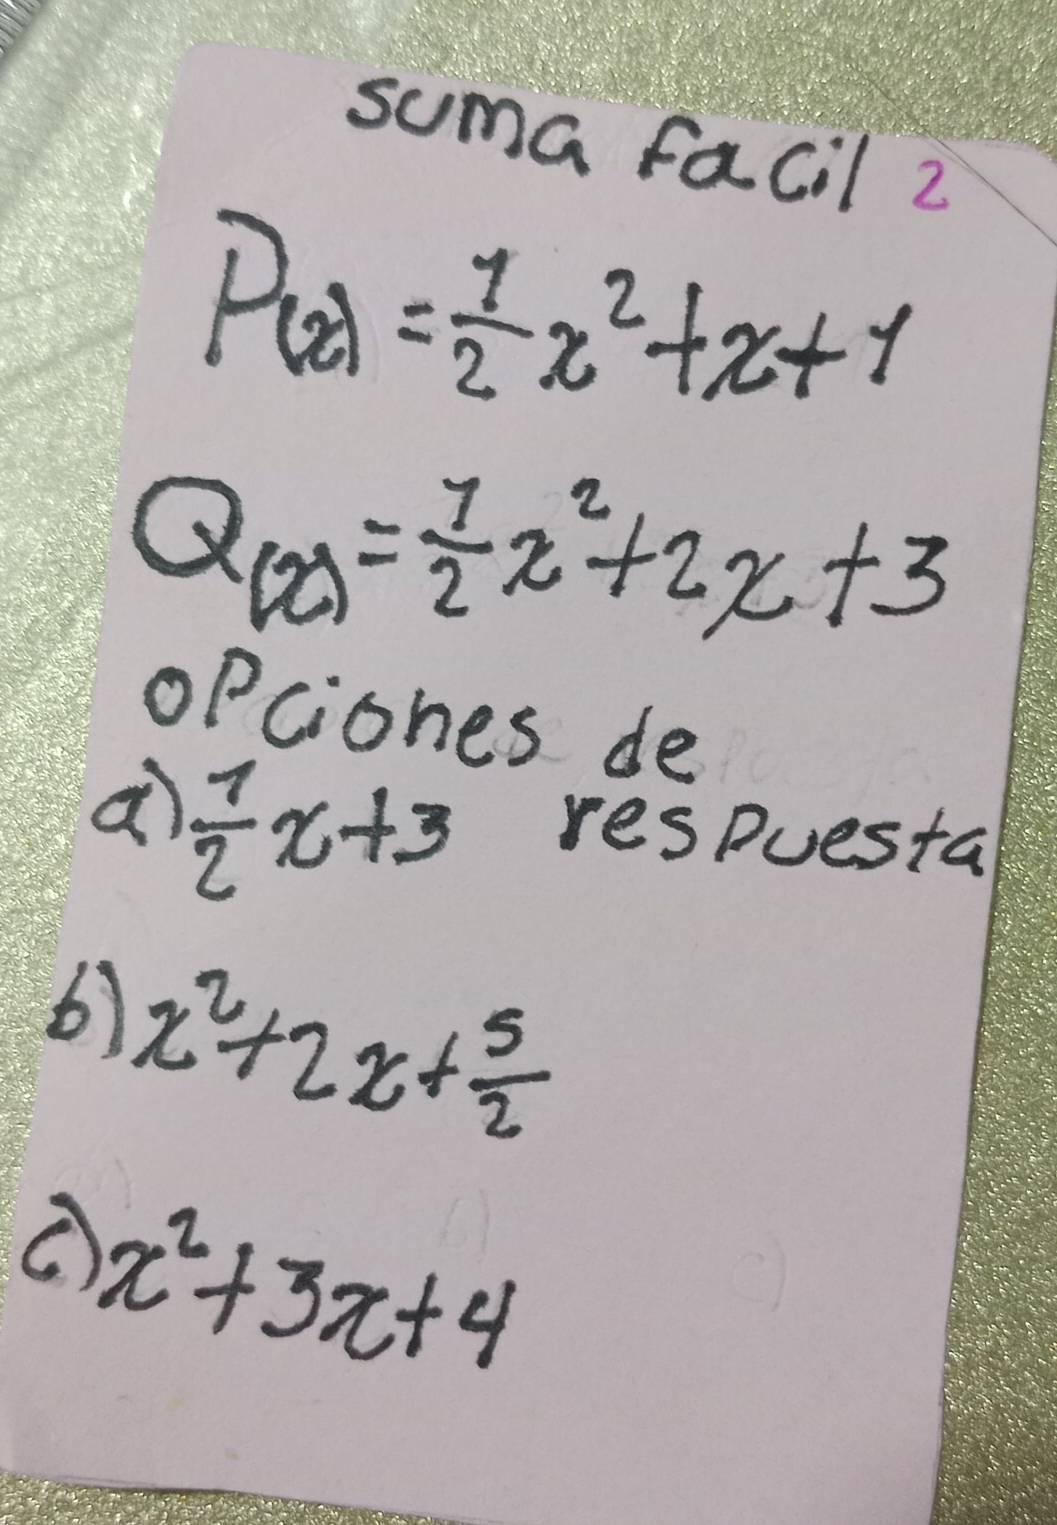 suma facil 2
P(x) = 1/2 x² + x + 1
Q(x) = 1/2 x² + 2x + 3
oPciones de
respuesta
a) 1/2 x + 3
b) x² + 2x + 5/2
c) x² + 3x + 4